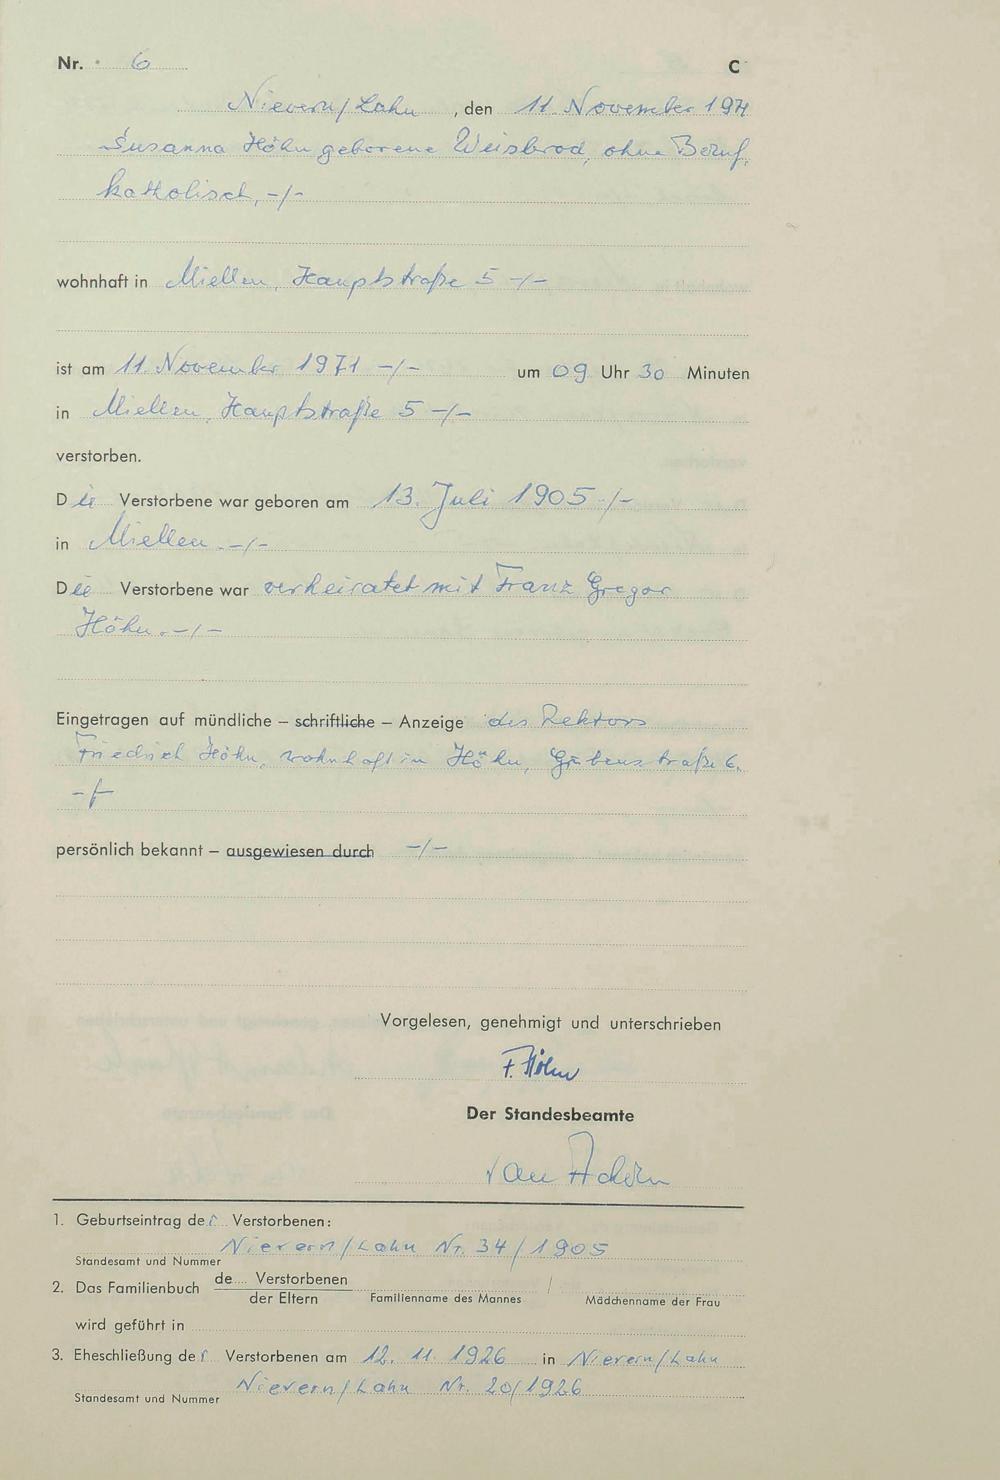 Nr. 6 C
Nievern/Lahn, den 11. November 1971
Susanna Höhn geborene Weisbrod, ohne Beruf,
katholisch, -/-
wohnhaft in Miellen, Hauptstraße 5 -/-
ist am 11. November 1971 -/- um 09 Uhr 30 Minuten
in Miellen, Hauptstraße 5 -/-
verstorben.
Die Verstorbene war geboren am 13. Juli 1905 -/-
in Miellen. -/-
Die Verstorbene war verheiratet mit Franz Gregor
Höhn. -/-
Eingetragen auf mündliche – schriftliche – Anzeige des Rektors
Friedrich Höhn, wohnhaft in Höhn, 6.
-/-
persönlich bekannt – ausgewiesen durch -/-
Vorgelesen, genehmigt und unterschrieben
F. Höhn
Der Standesbeamte
van
1. Geburtseintrag der Verstorbenen:
Nievern/Lahn Nr. 34/1905
Standesamt und Nummer
2. Das Familienbuch de Verstorbenen
der Eltern Familienname des Mannes / Mädchenname der Frau
wird geführt in
3. Eheschließung der Verstorbenen am 12. 11. 1926 in Nievern/Lahn
Nievern/Lahn Nr. 20/1926
Standesamt und Nummer